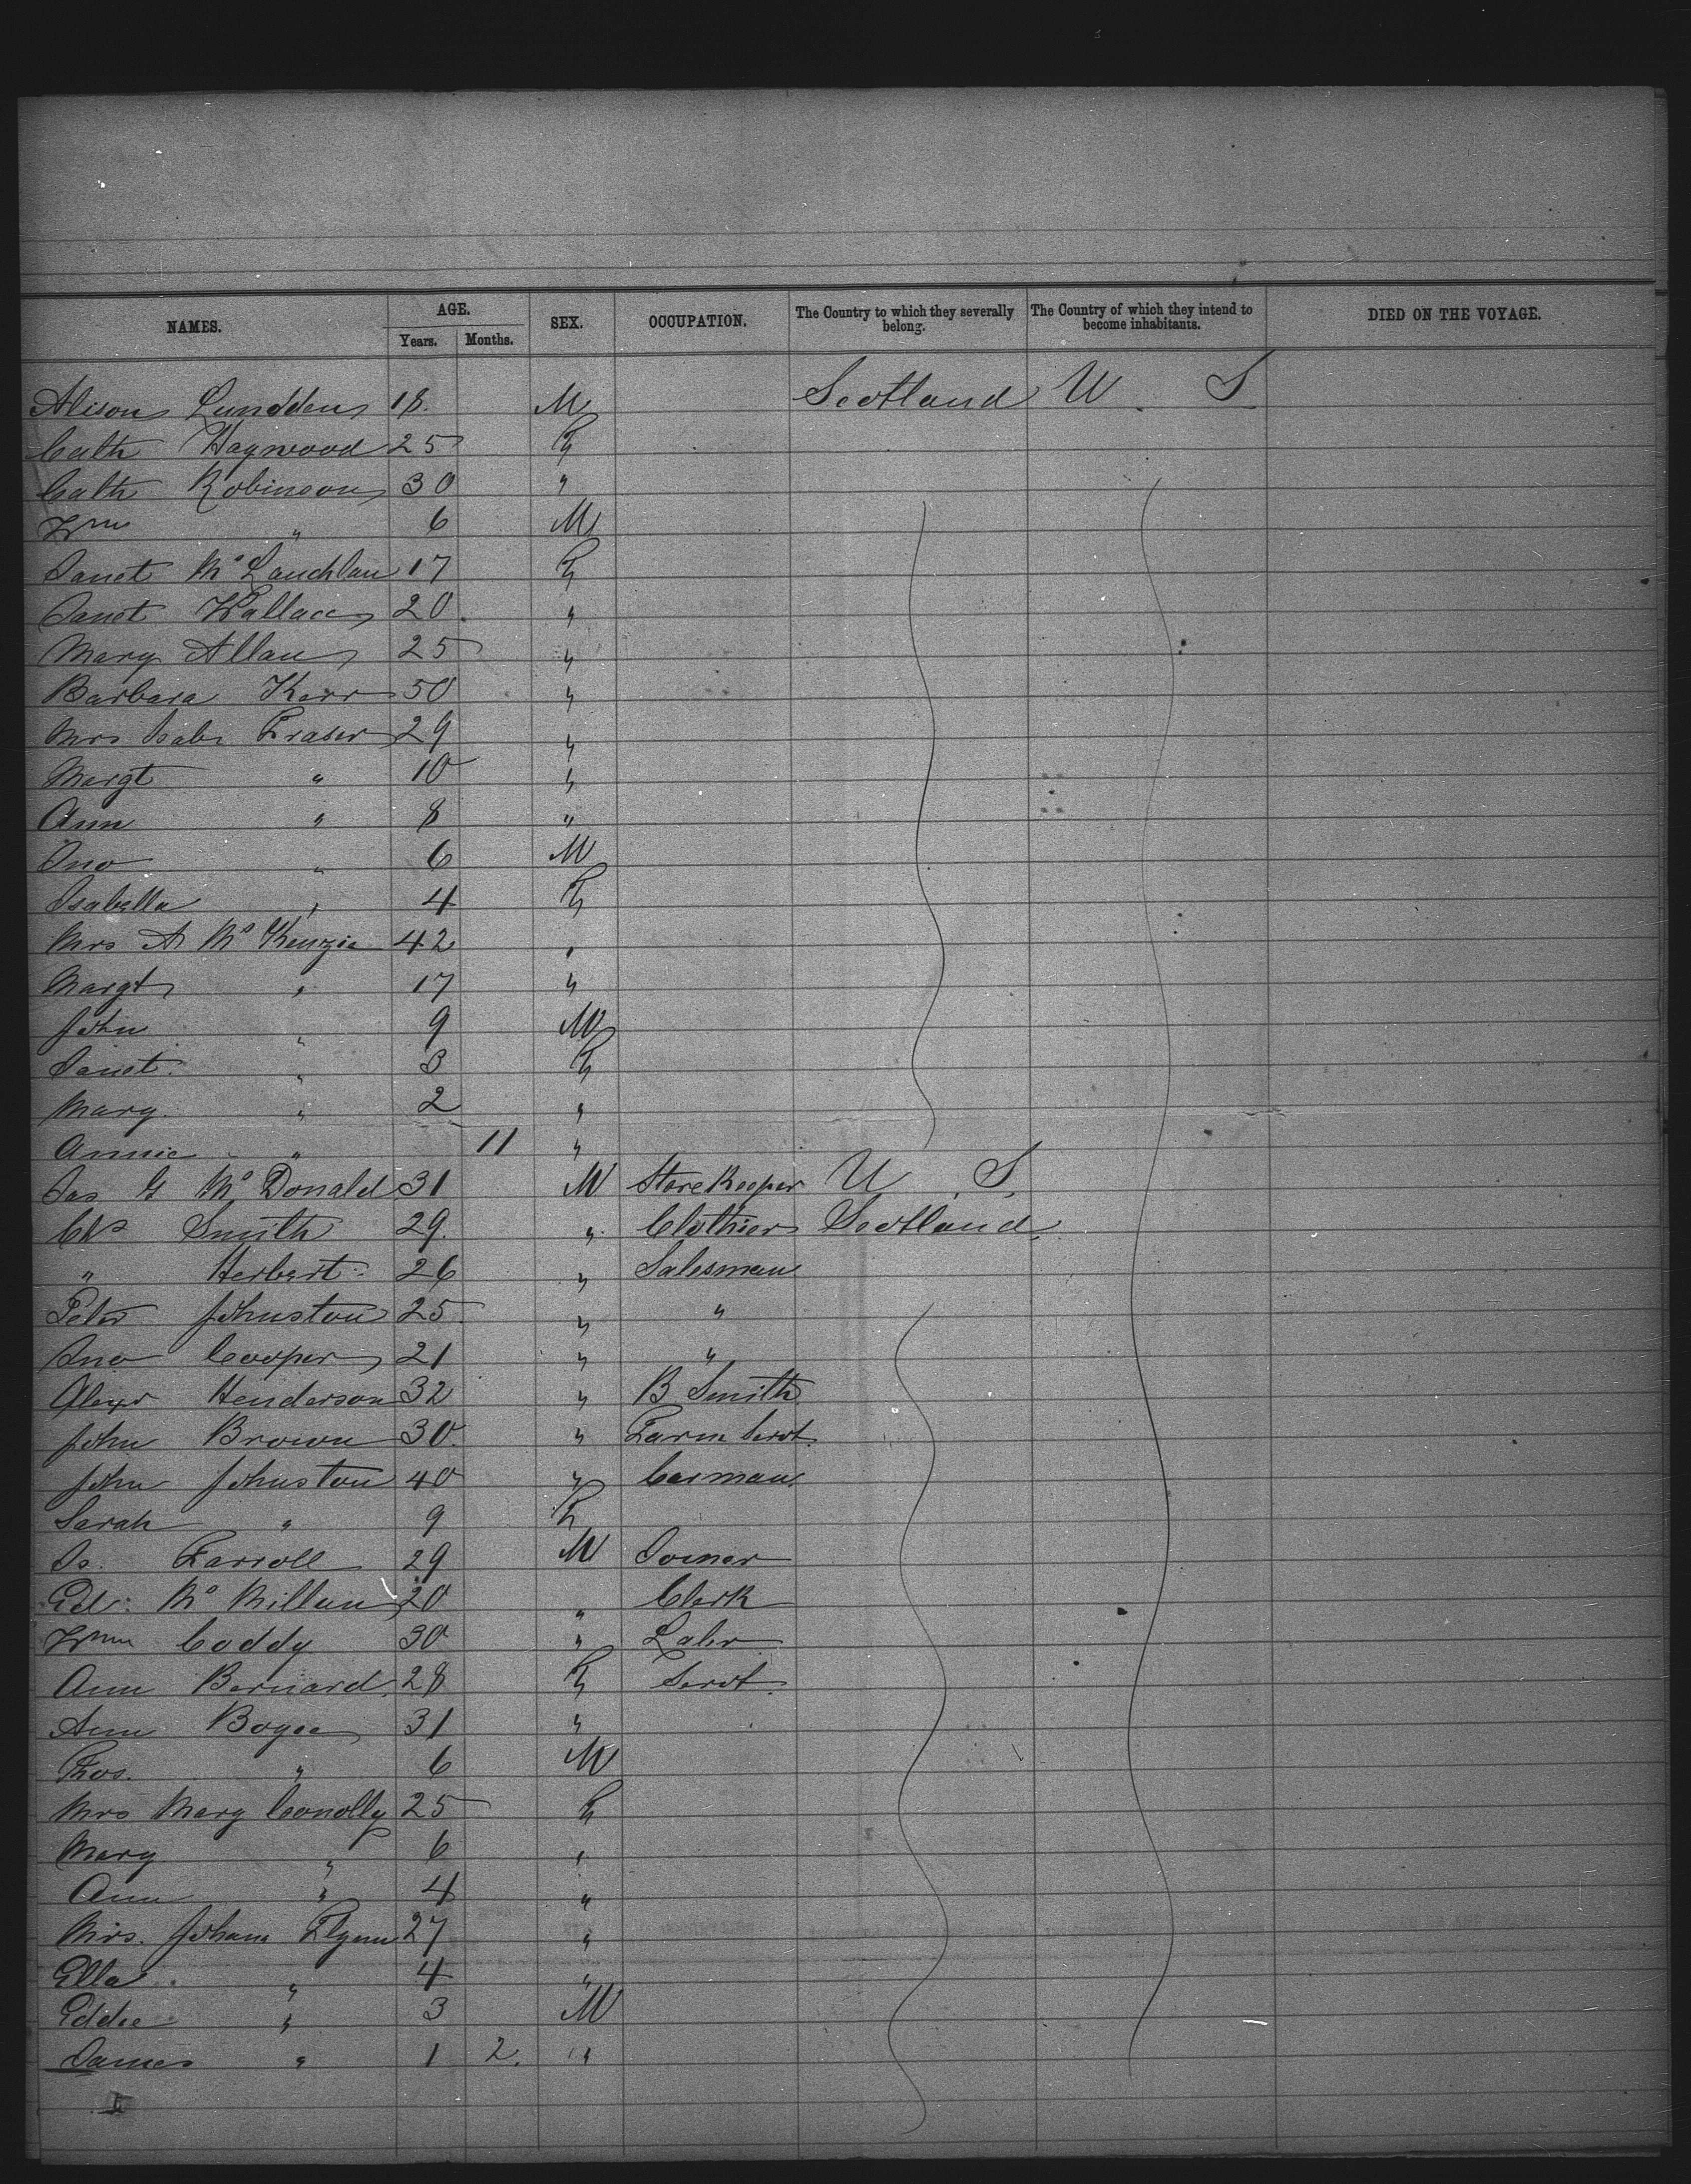 NAMES. AGE. SEX. OCCUPATION. The Country to which they severally belong. The Country of which they intend to become inhabitants. DIED ON THE VOYAGE.
Years. Months.
Alison Lundden 18. M Scotland U. S
Cath Haywood 25 F
Cath Robinson 30 "
Wm " 6 M
Janet Mc Lauchlan 17 F
Janet Wallace 20 "
Mary Allan 25 "
Barbara Kerr 50 "
Mrs Isabr Fraser 29 "
Margt " 10 "
Ann " 8 "
Jno " 6 M
Isabella " 4 F
Mrs A Mc Kenzie 42 "
Margt " 17 "
John " 9 M
Janet " 3 F
Mary " 2 "
Annie " 11 "
Jas G Mc Donald 31 M StoreKeeper U. S.
Chs Smith 29. " Clothier Scotland
" Herbert 26 " Salesman
Peter Johnston 25 " "
Jno Cooper 21 " "
Alexr Henderson 32 " B Smith
John Brown 30 " Farm Servt.
John Johnston 40 " Carman
Sarah " 9 F
Js. Farroll 29 M Joiner
Ed: Mc Millan 20 " Clerk
Wm Coddy 30 " Labr
Ann Bernard 28 F Servt.
Ann Bogee 31 "
Thos. " 6 M
Mrs Mary Conolly 25 F
Mary " 6 "
Ann " 4 "
Mrs. Johana Flynn 27 "
Ella " 4 "
Eddie " 3 M
James " 1 2. "